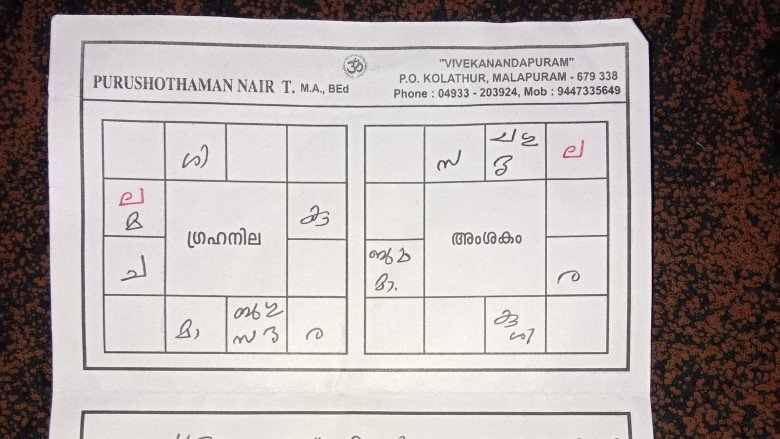 ॐ
PURUSHOTHAMAN NAIR T. M.A., BEd
"VIVEKANANDAPURAM"
P.O. KOLATHUR, MALAPURAM - 679 338
Phone : 04933 - 203924, Mob : 9447335649
ശി
ല
മ
കു
ച
ഗ്രഹനില
മാ
സ
ര
സ
ല
അംശകം
ര
കു
ശി